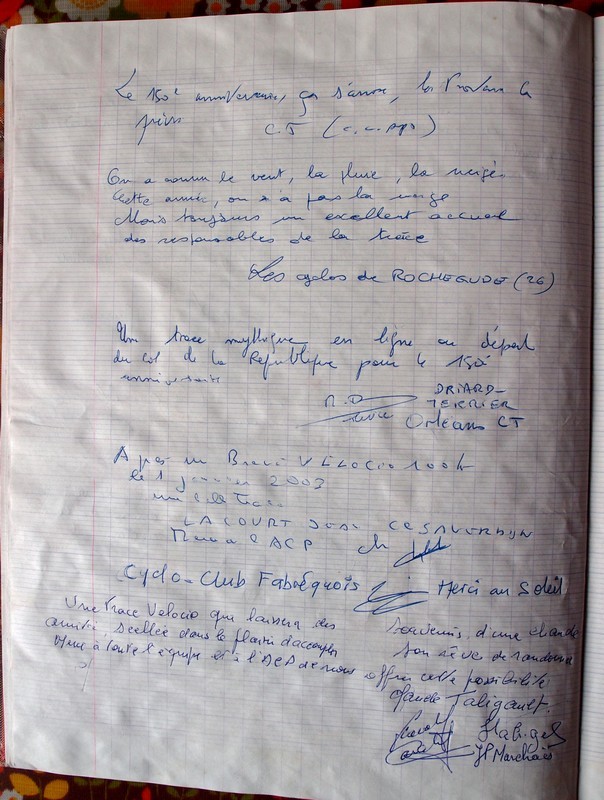 Le 150e anniversaire, ça
C.T (C.C.
On a connu le vent, la pluie, la neige.
Cette année, on a pas la neige
Mais toujours un excellent accueil
des responsables de la trace
Les cyclos de ROCHEGUDE (26)
Une trace mythique en ligne au départ
du col de la République pour le 150e
anniversaire
DRIARD-
TERRIER
Orléans CT
Après un Brevet VELOCIO 100k
le 1 janvier 2003
une belle Trace
LACOURT JEAN
Merci à l'ACP
Cyclo-Club Fabrèguois Merci au Soleil
Une Trace Velocio que laissera des souvenirs d'une chaude
amitié, scellée dans le plaisir d'accomplir son rêve de randonneur
à toute l'équipe et à l'ACP de nous offrir cette possibilité
Claude Taligault.
JP Marchais